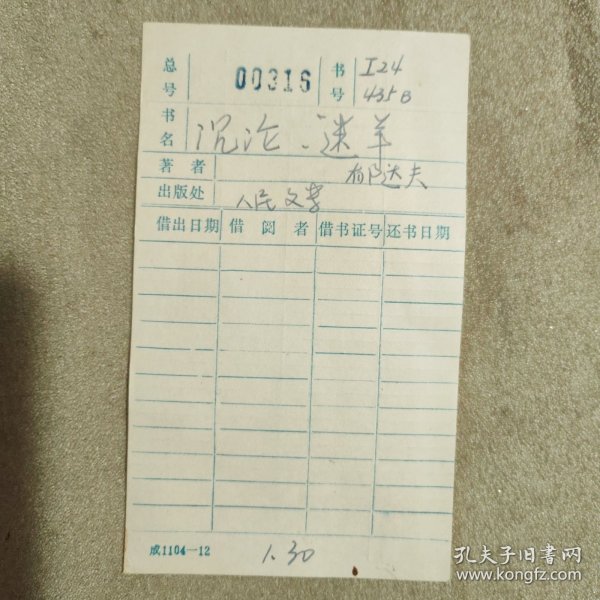 总号 00316 书号 I24
435B
书名 沉沦、迷羊
著者 郁达夫
出版处 人民文学
借出日期 借阅者 借书证号 还书日期
成1104—12 1.30
孔夫子旧书网
www.kongfz.com